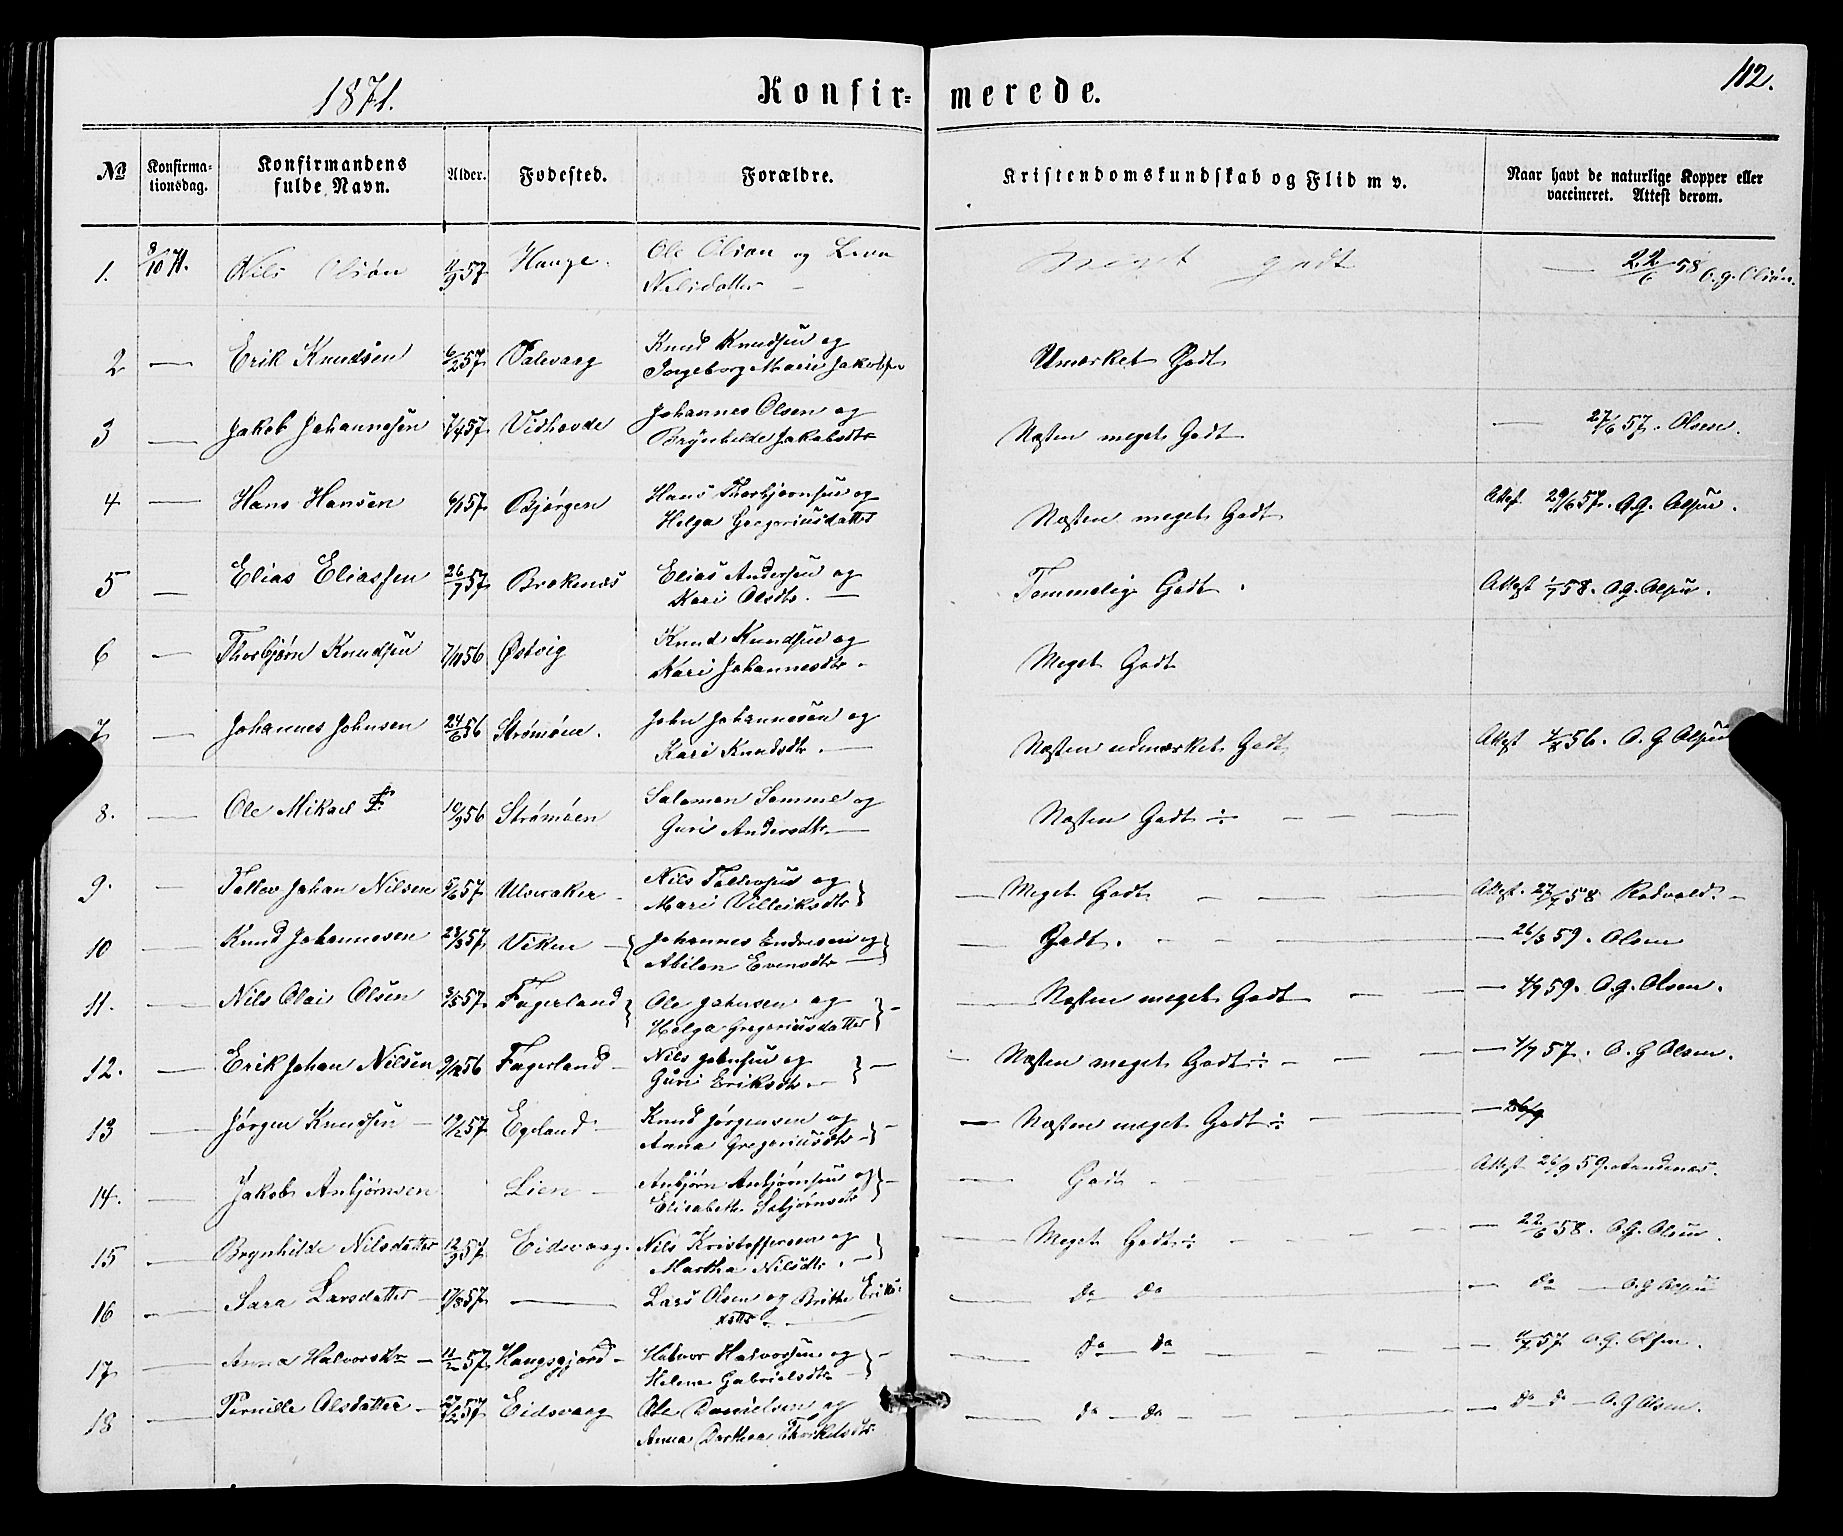 1871. Konfir- merede. 112.
№ Konfirma-tionsdag. Konfirmandens fulde Navn. Alder. Fødested. Forældre. Kristendomskundskab og Flid m v. Naar havt de naturlige Kopper eller vaccineret. Attest derom.
1. 8/10 71. Nils Olsøn 11/9 57 Hauge. Ole Olson og Leva Meget godt — 22/6 58 O. G. Olsøn.
Nilsdatter —
2 — Erik Knudsen 6/2 57 Valevaag Knud Knudsen og Umærket Godt
Ingeborg Marie
3 — Jakob Johannesen 7/4 57 Vidhovde Johannes Olsen og Næsten meget Godt — 27/6 57. Olsen.
Brynhilde Jakobsdtr
4 — Hans Hansen 6/1 57 Bjørgen Hans Thorbjørnsen og Næsten meget Godt Attest 29/6 57. O.G. Olsen.
Helga Gregoriusdatter
5 — Elias Eliassen 26/7 57 Brekenæs Elias Andersen og Temmelig Godt. Attest 1/7 58. O.G. Olsen.
Kari Olsdtr. —
6 — Thorbjørn Knudsen 7/11 56 Østvig Knud Knudsen og Meget Godt
Kari Johannesdtr.
7 — Johannes Johnsen 24/6 56 Strømøen. John Johannesen og Næsten udmærket Godt Attest 56. O. G Olsen
Kari Knudsdtr. —
8. — Ole Mikael 10/9 56 Strømøen Salomon Somme og Næsten Godt ÷ — — —
Guri Andersdtr —
9. — Tollev Johan Nilsen 5/6 57 Ulveraker Nils Tollevsen og — Meget Godt — — — Attest. 27/7 58 Rodvald. —
Mari Villeiksdtr
10 — Knud Johannesen 23/3 57 Viken — Johannes Endresen og — Godt. — — — — 26/3 59. Olsen
Abilon Evensdtr —
11. — Nils Olai Olsen 3/5 57. Fagerland Ole Johnsen og — Næsten meget Godt — — — 59. O.G. Olsen.
Helga Gregoriusdatter
12. — Erik Johan Nilsen 9/12 56 Fagerland — Nils Johnsen og — Næsten meget Godt ÷ — — — 57. O. G Olsen.
Guri Eriksdtr. —
13 — Jørgen Knudsen — 19/2 57 Egeland — Knud Jørgensen og — Næsten meget Godt ÷ — — — 26/9
Anna Gregoriusdtr —
14. — Jakob Anbjørnsen Lien — Anbjørn Anbjørnsen og — Godt. — Attest 26/9 59.
Elisabeth Sebjørnsdtr
15 — Brynhilde Nilsdatter 12/9 57 Eidsvaag. Nils Kristoffersen og — Meget Godt ÷ — — — — 22/6 58. O.G. Olsen.
Martha Nilsdtr. —
16 — Sara Larsdatter — 17/8 57 — Lars Olsen og Brithe Eriks- — do do — do — O.G Olsen
dattr —
17 — Anna Halvorsdtr — 11/2 57 Haugsgjærd — Halvor Halvorsen og — do do — — — — 57 O. G. Olsen.
Helene Gabrielsdtr —
18 — Pernille Olsdatter — 27/2 57 Eidsvaag Ole Danielsen og — do — do — — — — do d — O. G Olsen.
Anna Dorthea Thorkelsdtr